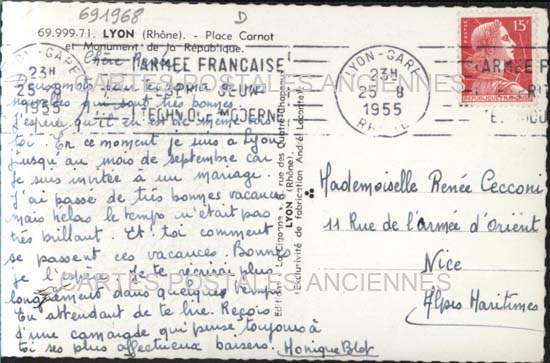 691968
D
69.999.71. LYON (Rhône). - Place Carnot
et Monument de la République.
LYON-GARE
23H
25-8
1955
ARMÉE FRANÇAISE
TECHNIQUE MODERNE
LYON-GARE
23H
25-8
1955
RHONE
15F
REPUBLIQUE FRANÇAISE
ARMÉE FR
CARTES POSTALES ANCIENNES
Chère Renée
nouvelles qui sont très bonnes.
J'espère qu'il en est de même pour
toi. En ce moment je suis à Lyon
jusqu'au mois de septembre car
je suis invitée à un mariage.
J'ai passé de très bonnes vacances
mais hélas le temps n'était pas
très brillant. Et toi comment
se passent ces vacances. Bonnes
je l'espère. Je te récrirai plus
longuement dans quelques temps
En attendant de te lire. Reçois
d'une camarade qui pense toujours à
toi ses plus affectueux baisers. Monique Blot
Editions La Cigogne - rue des Quatre-Chapeaux
LYON (Rhône).
(Exclusivité de fabrication André Leconte)
Mademoiselle Renée Cecconi
11 Rue de l'armée d'Orient
Nice
Alpes Maritimes
CARTES POSTALES ANCIENNES